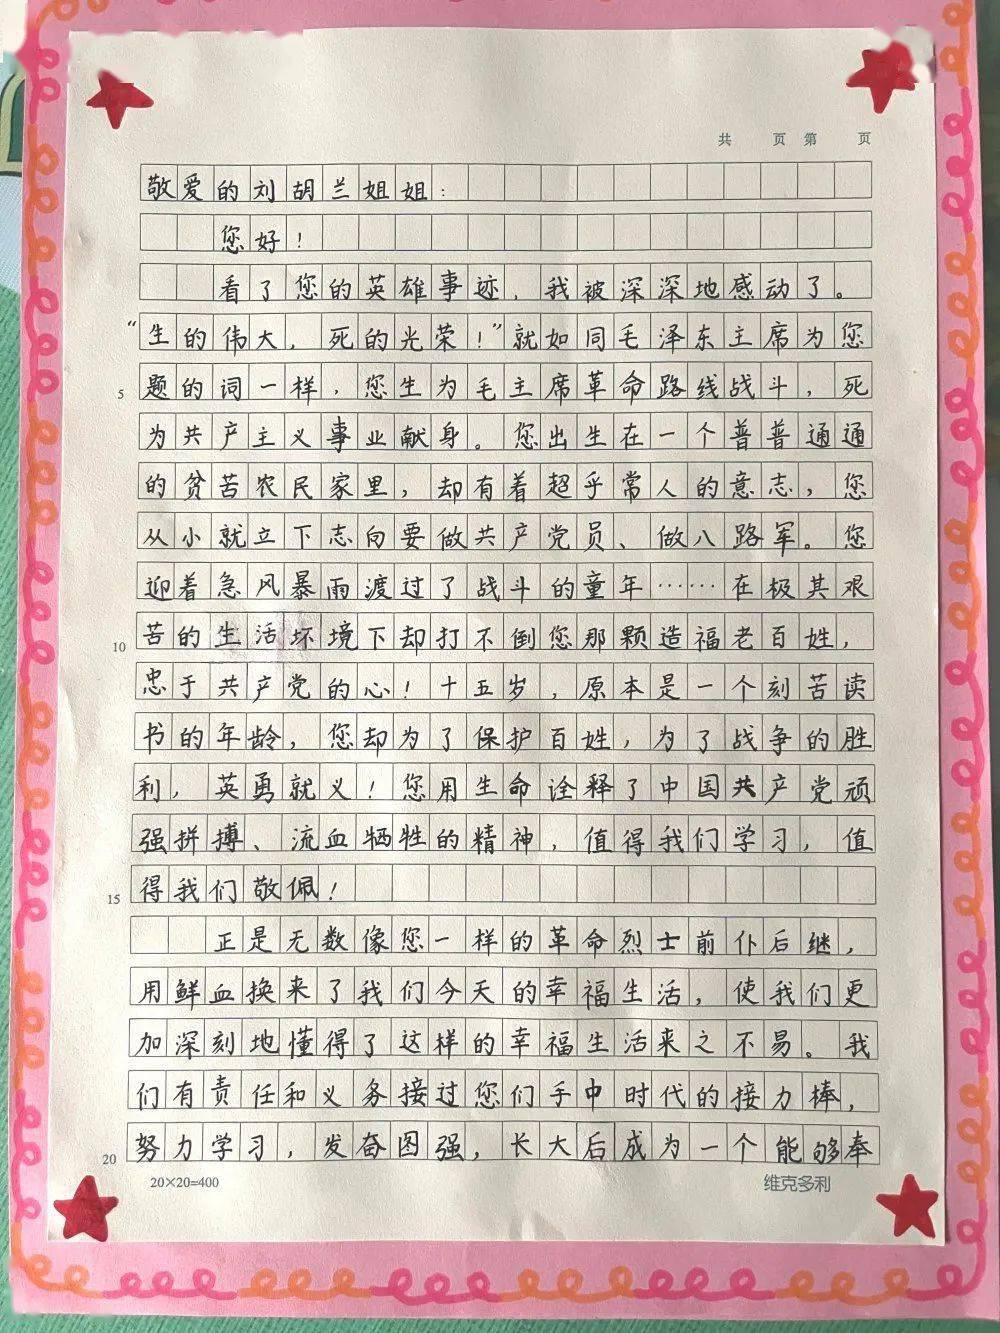 共 页 第 页
敬爱的刘胡兰姐姐：
您好！
看了您的英雄事迹，我被深深地感动了。
“生的伟大，死的光荣！”就如同毛泽东主席为您
5 题的词一样，您生为毛主席革命路线战斗，死
为共产主义事业献身。您出生在一个普普通通
的贫苦农民家里，却有着超乎常人的意志，您
从小就立下志向要做共产党员、做八路军。您
迎着急风暴雨渡过了战斗的童年……在极其艰
10 苦的生活坏境下却打不倒您那颗造福老百姓，
忠于共产党的心！十五岁，原本是一个刻苦读
书的年龄，您却为了保护百姓，为了战争的胜
利，英勇就义！您用生命诠释了中国共产党顽
强拼搏、流血牺牲的精神，值得我们学习，值
15 得我们敬佩！
正是无数像您一样的革命烈士前仆后继，
用鲜血换来了我们今天的幸福生活，使我们更
加深刻地懂得了这样的幸福生活来之不易。我
们有责任和义务接过您们手中时代的接力棒，
20 努力学习，发奋图强，长大后成为一个能够奉
20×20=400 维克多利